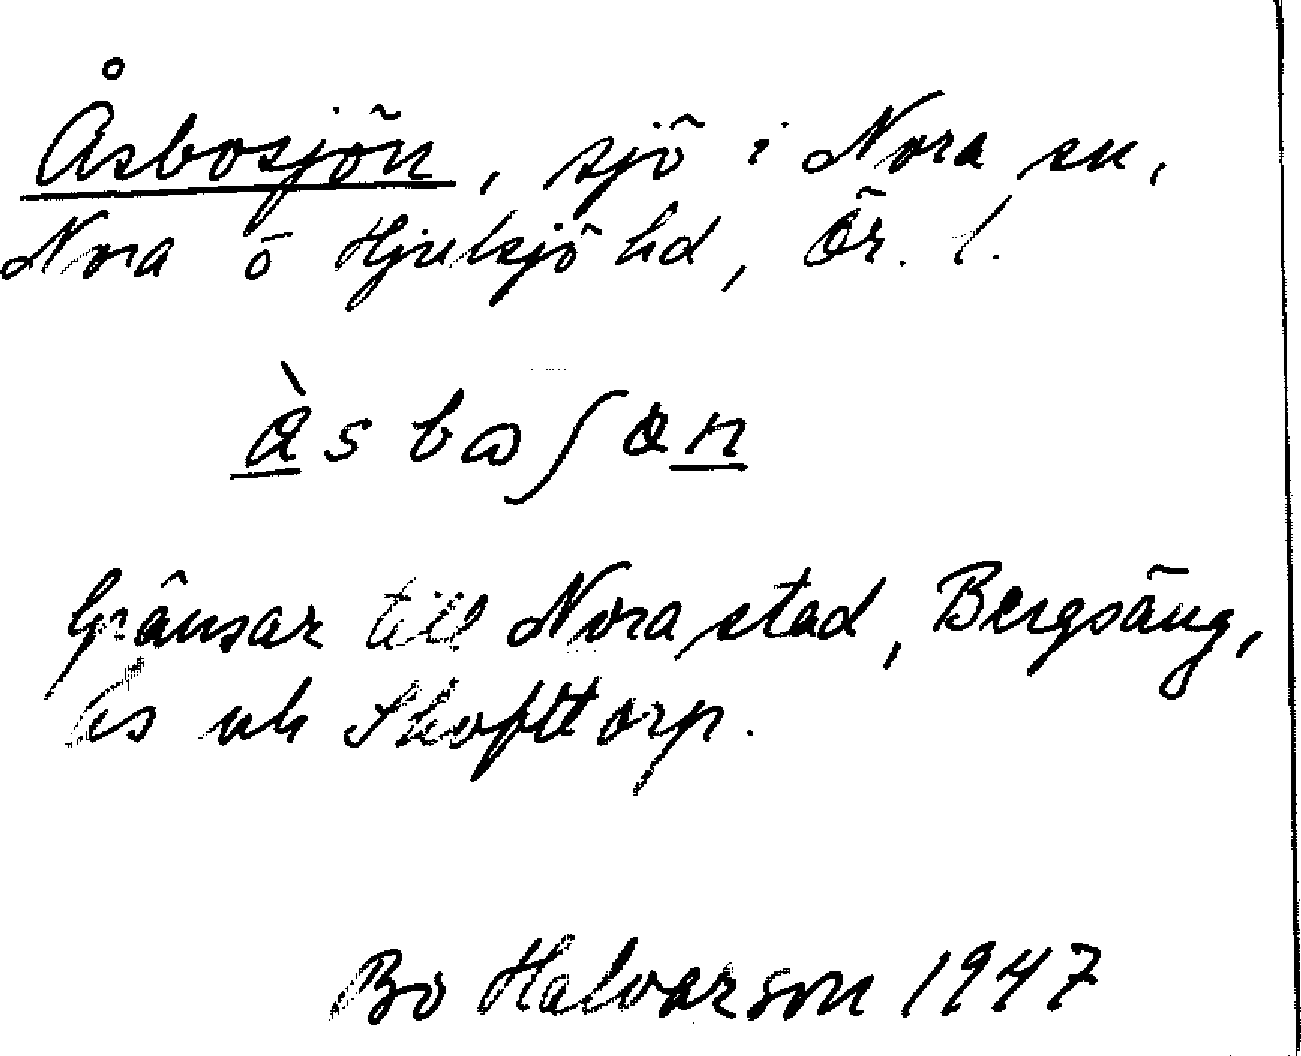 Åsbosjön, sjö i Nora sn,
Nora o Hjulsjö hd, Ör. l.
Gränsar till Nora stad, Bergsäng,
Ås och Skofttorp.
Bo Halvarson 1947